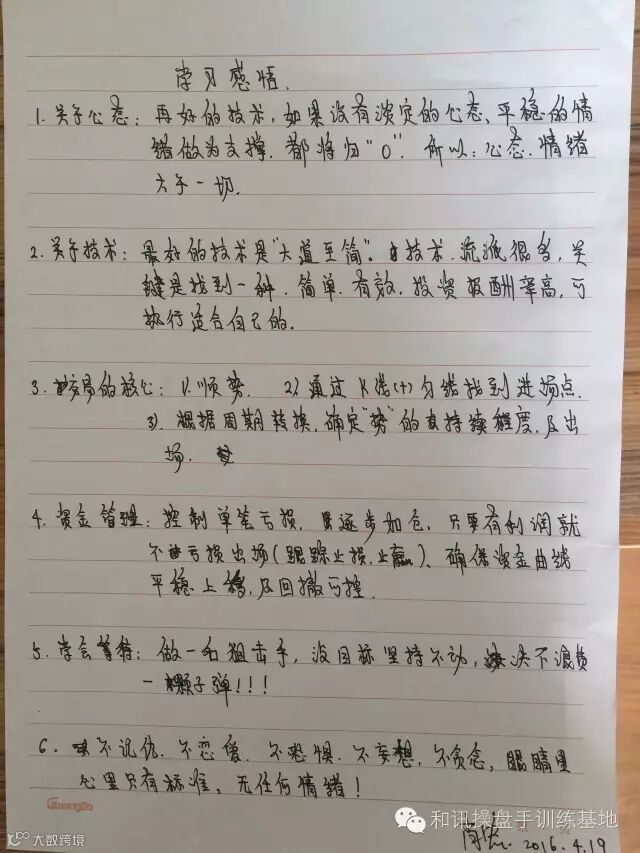 学习感悟.
1. 关于心态: 再好的技术, 如果没有淡定的心态、平稳的情
绪做为支撑, 都将归“0”. 所以: 心态. 情绪
大于一切.
2. 关于技术: 最好的技术是“大道至简”. 技术. 流派很多, 关
键是找到一种. 简单. 有效. 投资报酬率高, 可
执行适合自己的.
3. 交易的核心: 1). 顺势. 2). 通过K线(+)均线找到进场点.
3). 根据周期转换, 确定“势”的持续程度, 及出
场.
4. 资金管理: 控制单笔亏损, 逐步加仓, 只要有利润就
不亏损出场(跟踪止损, 止赢). 确保资金曲线
平稳上, 及回撤可控.
5. 学会等待: 做一名狙击手, 没目标坚持不动, 决不浪费
一颗子弹!!!
6. 不记仇. 不恋爱. 不恐惧. 不妄想, 不贪念, 眼睛里
心里只有标准, 无任何情绪!
GuangBo
和讯操盘手训练基地
2016.4.19
大数跨境